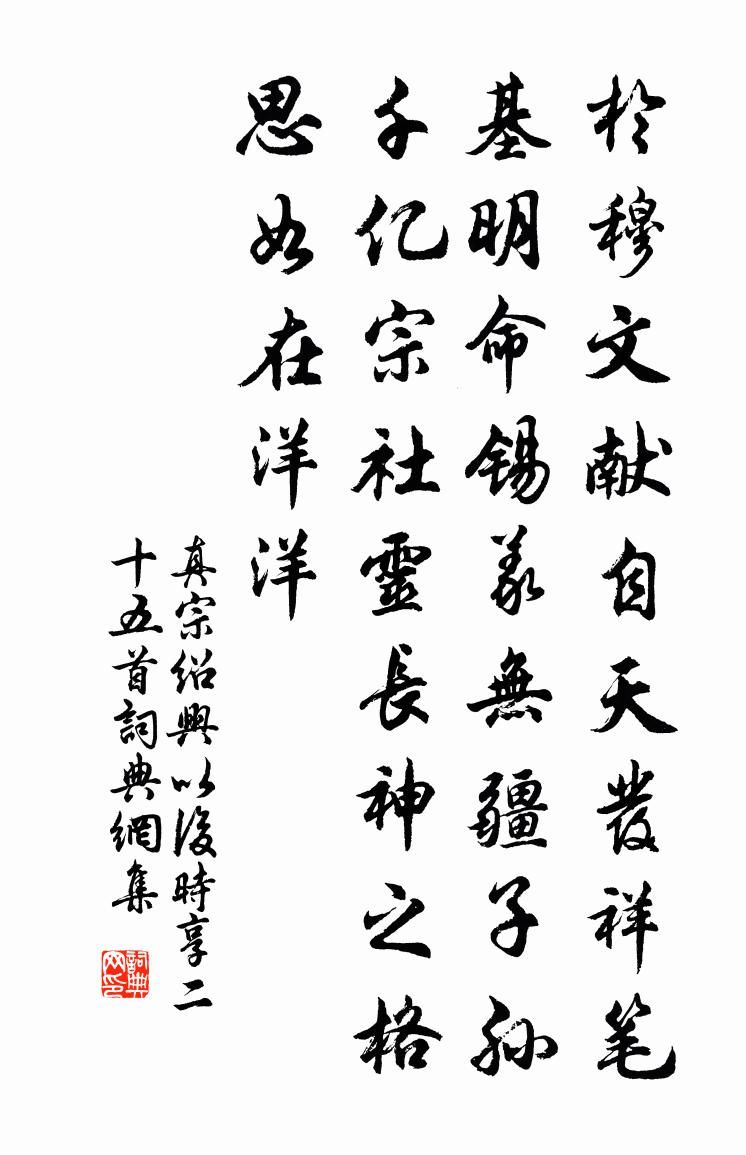 於穆文献自天發祥笔
基明命锡羡無疆子孙
千亿宗社靈長神之格
思如在洋洋
真宗绍興以後時享二
十五首詞典網集
詞典网印